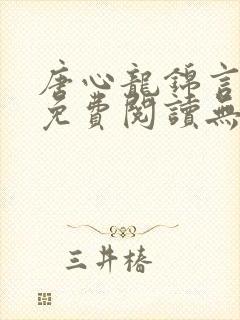 唐心龍錦言
免費閱讀無
三井椿